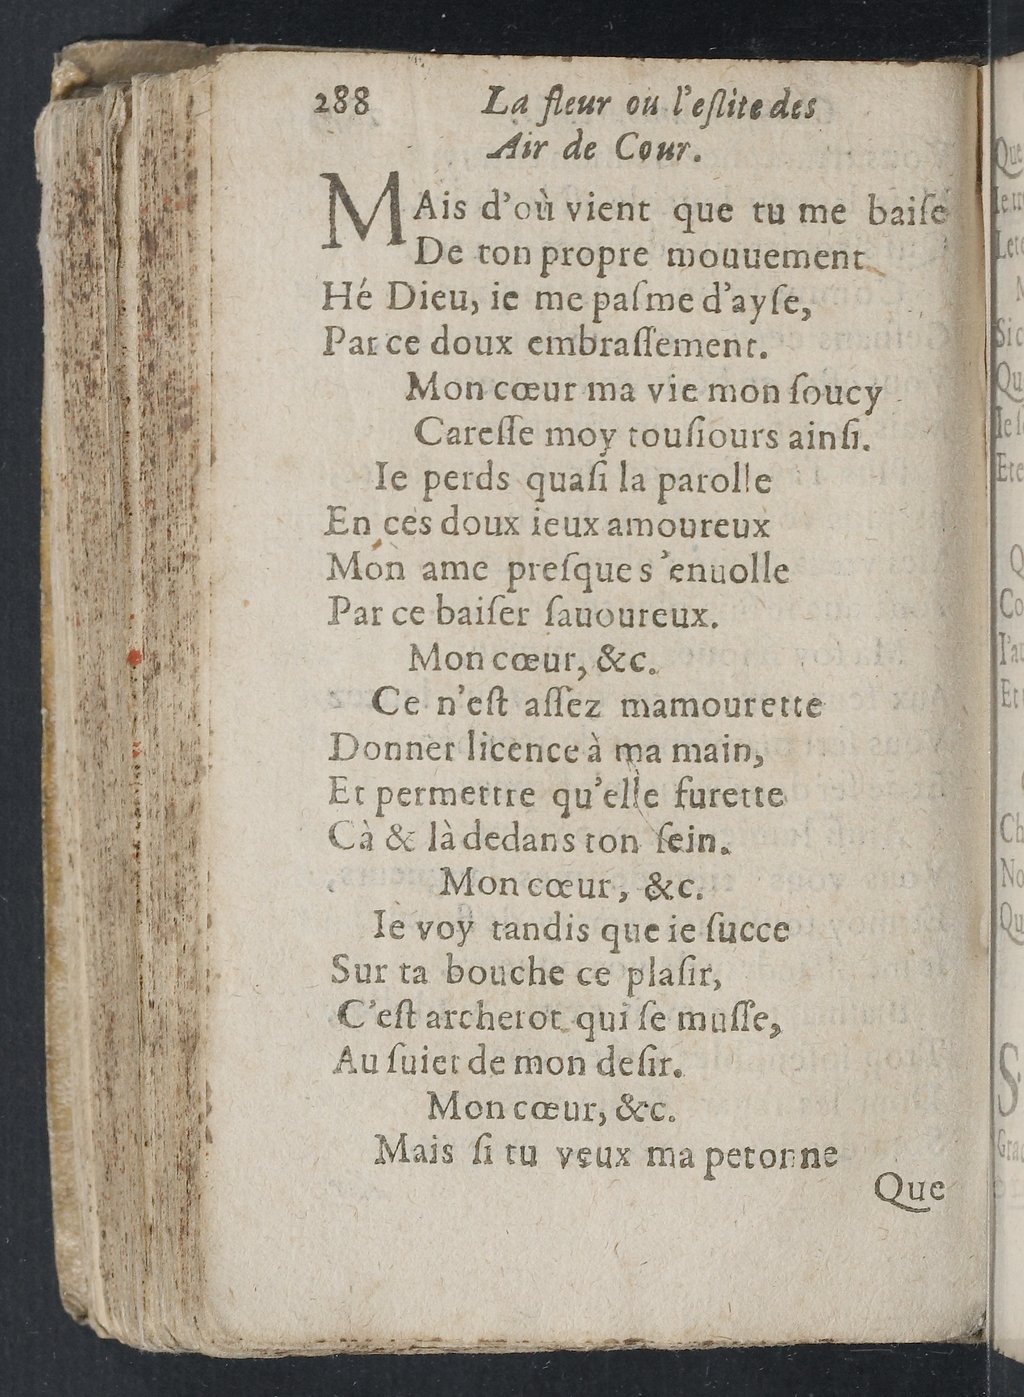 288 La fleur ou l'eſlite des
Air de Cour.
MAis d'où vient que tu me baiſe
De ton propre mouuement
Hé Dieu, ie me paſme d'ayſe,
Par ce doux embraſſement.
Mon cœur ma vie mon ſoucy
Careſſe moy touſiours ainſi.
Ie perds quaſi la parolle
En ces doux ieux amoureux
Mon ame preſque s'enuolle
Par ce baiſer ſauoureux.
Mon cœur, &c.
Ce n'eſt aſſez mamourette
Donner licence à ma main,
Et permettre qu'elle furette
Cà & là dedans ton ſein.
Mon cœur, &c.
Ie voy tandis que ie ſucce
Sur ta bouche ce plaſir,
C'eſt archerot qui ſe muſſe,
Au ſuiet de mon deſir.
Mon cœur, &c.
Mais ſi tu veux ma petonne
Que